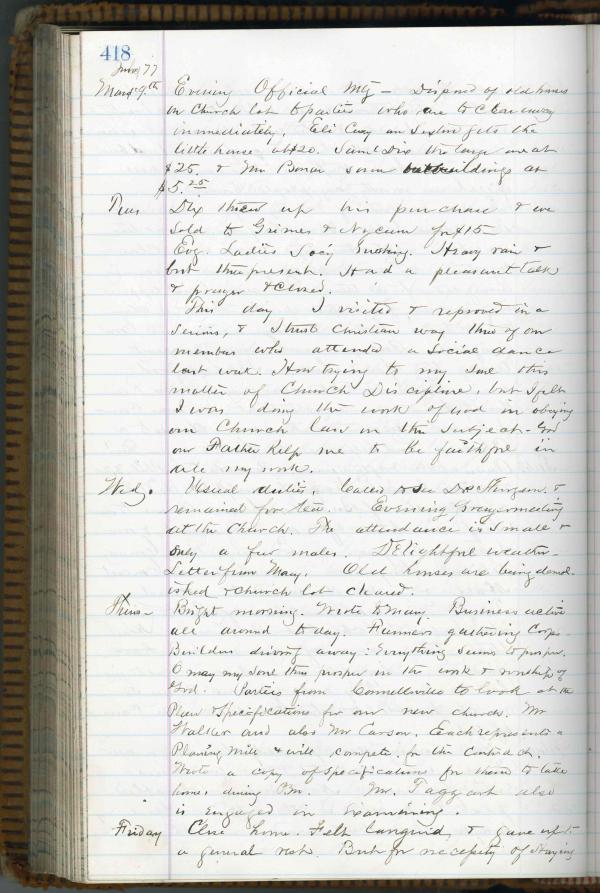 418
July 77
Mon. 9th Evening Official Mtg - Disposed of old houses
on Church lot to parties who are to clear away
immediately. Eli Cuey our Sexton gets the
little house at $20. Saml Dix the large one at
$25. & Mr Bonar some outbuildings at
$5.25
Tues Dix threw up his purchase & we
sold to Grimes & Nycum for $15
Evg. Ladies Soc'y Meeting. Heavy rain &
but three present. Had a pleasant talk
& prayer & closed.
This day I visited & reproved in a
serious, & I trust Christian way three of our
members who attended a social dance
last week. How trying to my soul this
matter of Church Discipline, but I felt
I was doing the work of God in obeying
our Church law on this subject - God
our Father help me to be faithful in
all my work.
Wed. Usual duties. Called to see Dr Sturgeon &
remained for tea. Evening Prayermeeting
at the Church. The attendance is small &
only a few males. Delightful weather.
Letter from Mary. Old houses are being demol-
ished & church lot cleared.
Thurs - Bright morning. Wrote to Mary. Business active
all around to day. Farmers gathering Crops
Builders driving away: Everything seems to prosper.
O may my soul thus prosper in the work & worship of
God. Parties from Connellsville to look at the
Plan & Specifications for our new church. Mr
Walker and also Mr Carson. Each represents a
Planing Mill & will compete for the Contract.
Wrote a copy of Specifications for them to take
home, during Pm. Mr. Taggart also
is engaged in examining.
Friday Close home. Felt languid & gave up to
a general rest. But for necessity of staying